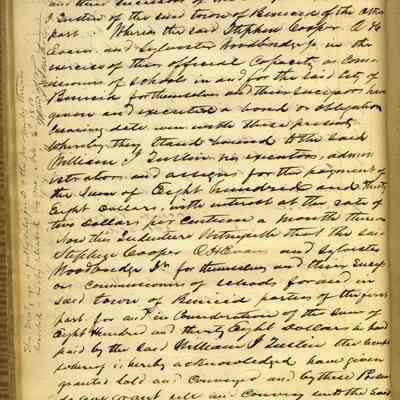 and their successor
J Tustin of the said town of Benicia of the other
part. Whereas the said Stephen Cooper O H
Evans and Sylvester Woodbridge Jr in the
exercise of their official Capacity as Com
issioners of schools in and for the said City of
Benicia for themselves and their successors have
given and executed a bond or obligation
bearing date even with these presents
whereby they stand bound to the said
William J Tustin his executors, admin
istrators and assigns for the payment of
the sum of Eight hundred and thirty
Eight Dollars, with interest at the rate of
two dollars per Centum a month therein
Now this Indenture Witnesseth that the said
Stephen Cooper O H Evans and Sylvester
Woodbridge Jr for themselves and their Success
ors Commissioners of schools for and in
said town of Benicia parties of the first
part for and in Consideration of the sum of
Eight Hundred and thirty Eight Dollars in hand
paid by the said William J Tustin the receipt
whereof is hereby acknowledged have given
granted sold and Conveyed and by these Presen
do give grant sell and Convey unto the said